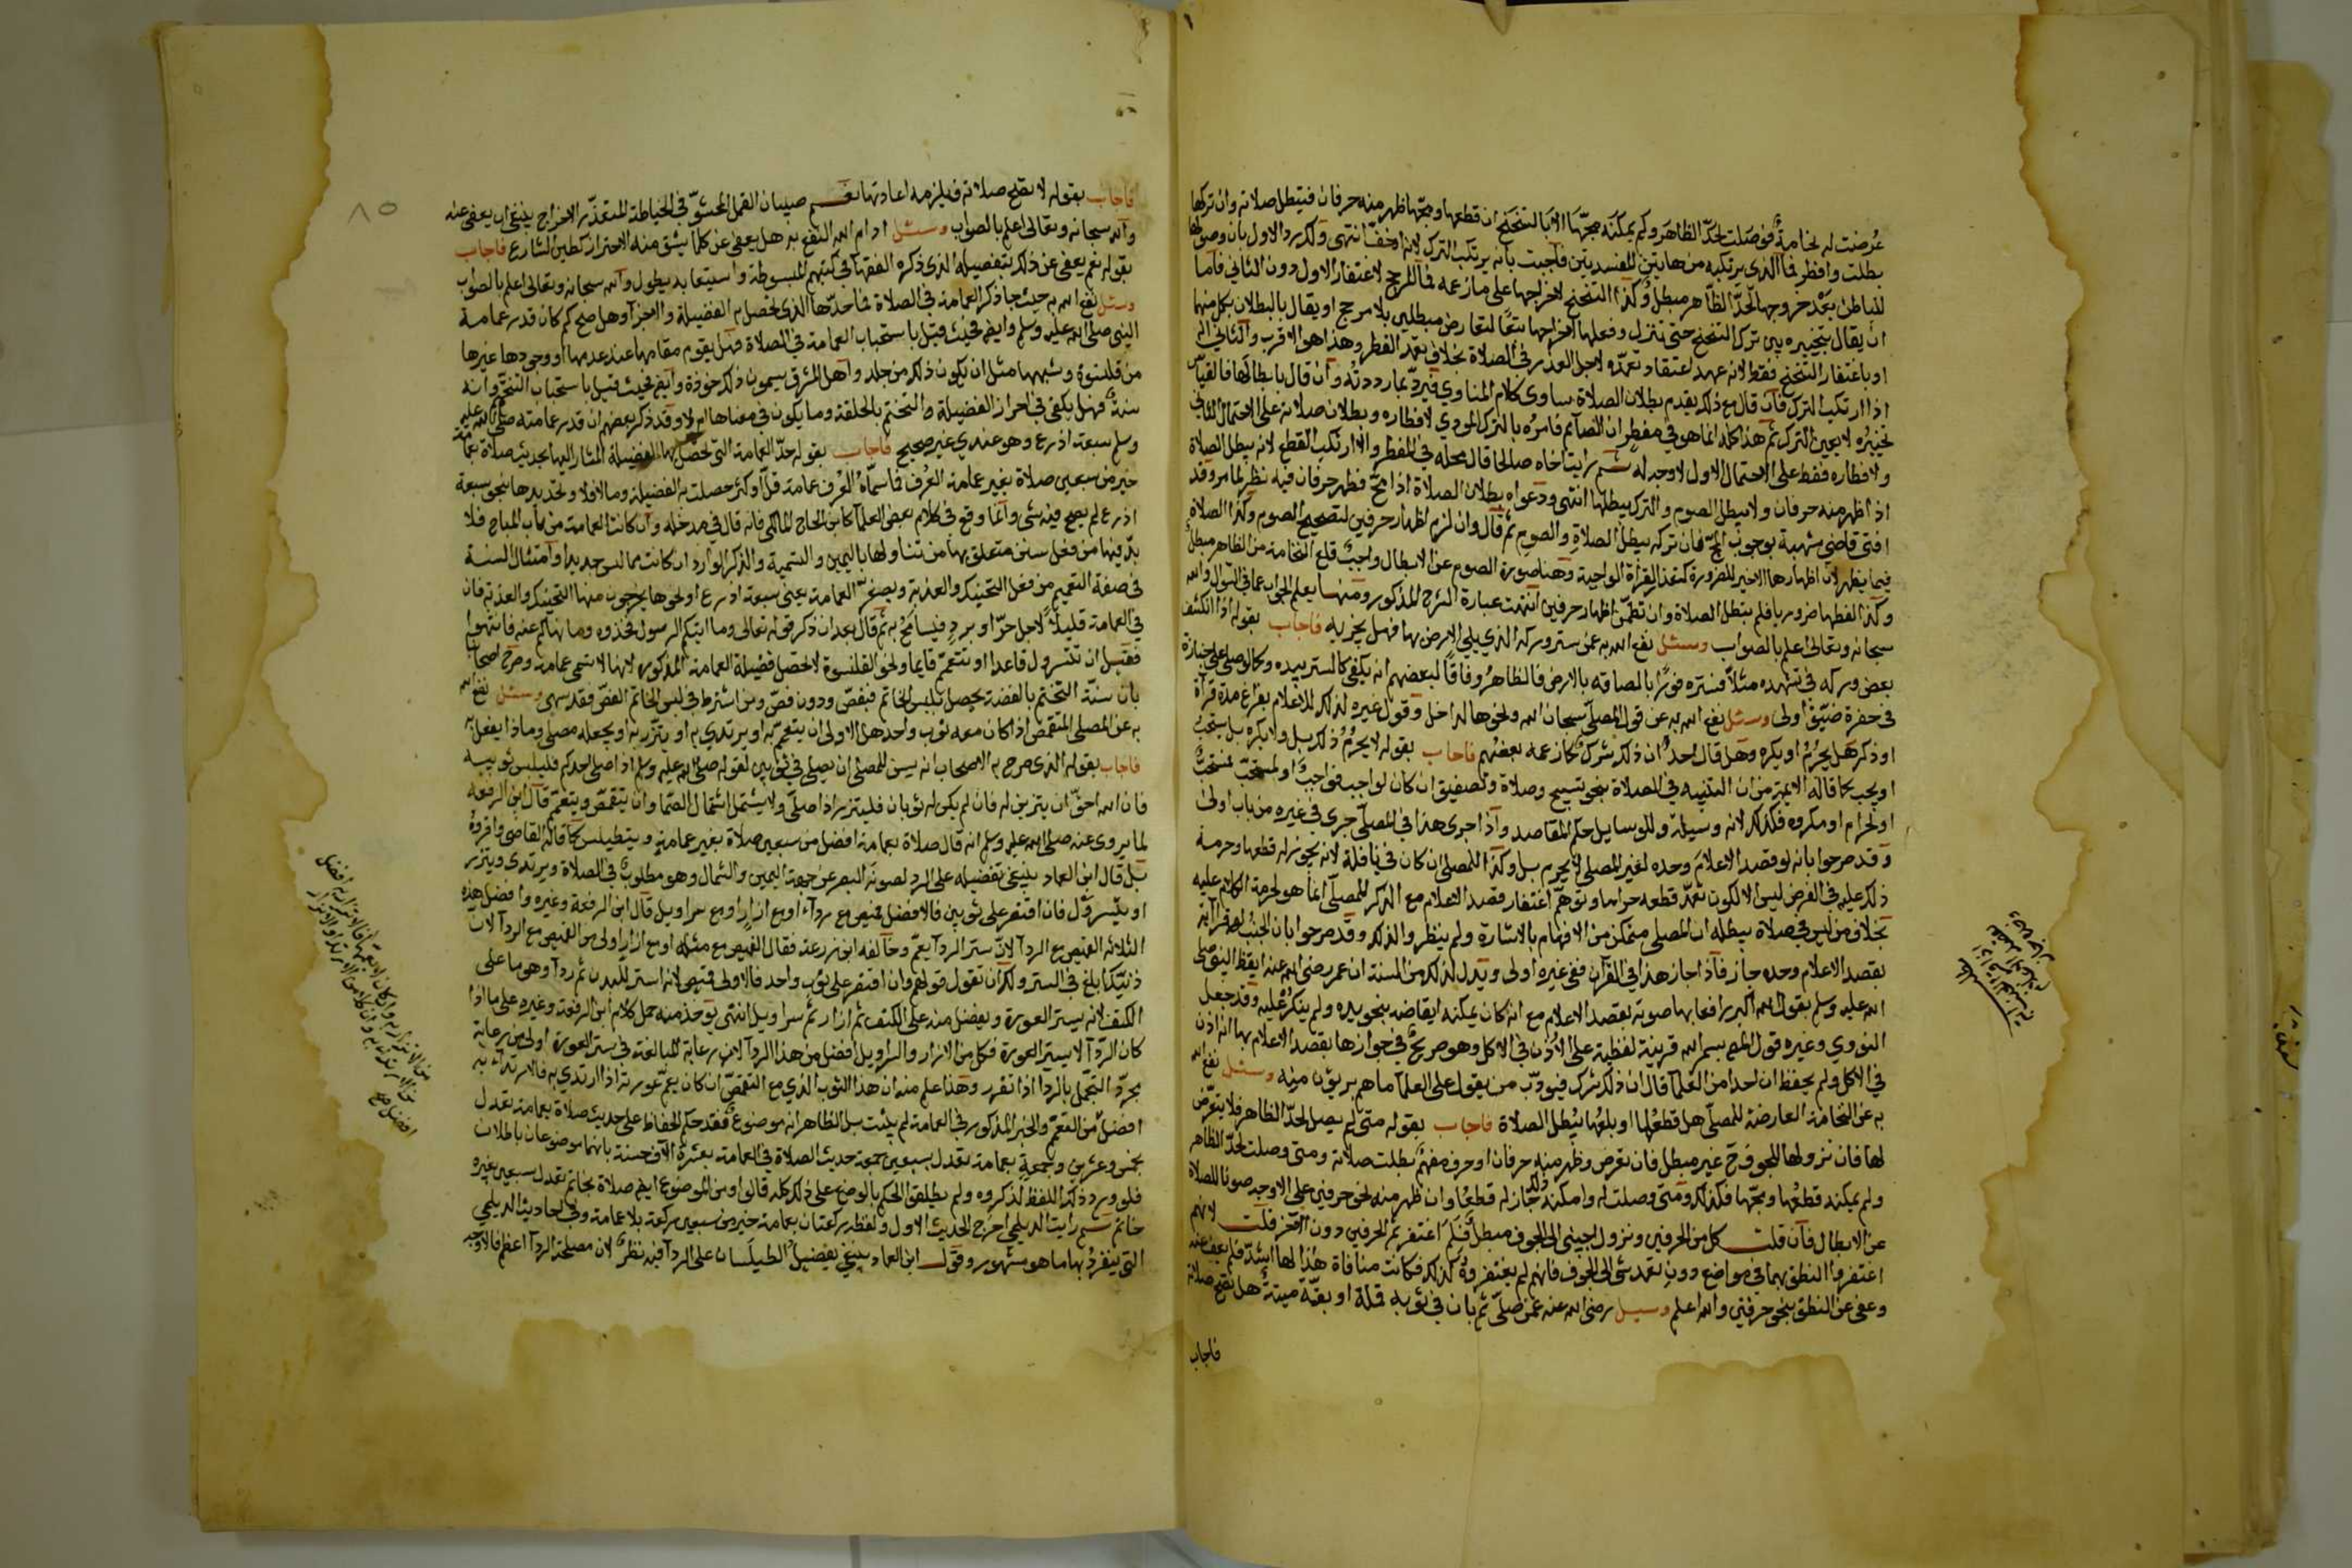 عرضت له نخامة فوصلت لحد الظاهر ولم يمكنه مجها الا بالتنحنح ان قطعها ومجها ظهر منه حرفان فتبطل صلاته وان تركها
بطلت وافطر فما الذي يرتكبه من هاتين المفسدتين فاجبت بانه يرتكب الترك لانه اخف انتهى ولك رد الاول بان وصولها
للباطن بعد خروجها لحد الظاهر مبطل وكذا التنحنح لاخراجها على ما زعمه فما المرجح لاغتفار الاول دون الثاني فاما
ان يقال بتخييره بين ترك التنحنح حتى تنزل وفعلها اخراجها لتعارض مبطلين بلا مرجح او يقال بالبطلان بكل منهما
او باغتفار التنحنح فقط لانه عهد اغتفاد تعمده لاجل العذر في الصلاة بخلاف تعمد الفطر وهذا هو الاقرب والثاني
اذا ارتكب الترك فان قال مع ذلك بعدم بطلان الصلاة ساوى كلام المناوي فيرد بما رددته وان قال بابطالها فالقياس
تخييره لا يعين الترك ثم هذا كله انما هو في مفطر ان الصائم فامره بالترك المودي لافطاره وبطلان صلاته على الاحتمال الثاني
ولافطاره فقط على الاحتمال الاول لا وجه له ثم رايت اخاه صالحا قال محله في المفطر والا ارتكب القطع لانه يبطل الصلاة
اذا ظهر منه حرفان ولا يبطل الصوم والترك يبطلهما انتهى ودعواه بطلان الصلاة اذا مج فظهر حرفان فيه نظر لما مر وقد
افتى قاضي شهبة بوجوب المج فان تركه يبطل الصلاة والصوم ثم قال وان لزم اظهار حرفين لتصحيح الصوم وكذا الصلاة
فيما يظهر لان اظهارها الاخير للضرورة كتعذر القراة الواجبة وهنا صورة الصوم عن الابطال واجبة قلع النخامة من الظاهر مبطل
وكذا لفظها ضروريا فلم يبطل الصلاة وان تضمن اظهار حرفين انتهت عبارة الشرح المذكور ومنها يعلم الجواب عما في السؤال والله
سبحانه وتعالى اعلم بالصواب وسئل نفع الله به عمن ستر وركه الذي يلي الارض بها فهل يجزيه فاجاب بقوله اذا انكشف
بعض وركه في تشهده مثلا فستره فورا بالصاقه بالارض فالظاهر وفاقا لبعضهم انه يكفي كالستر بيده وكما لو صلى على جنازة
في حفرة ضيق اولى وسئل نفع الله به عن قول المصلي سبحان الله ونحوها لداخل وقول غيره لذلك للاعلام بفراغ مدة قراة
او ذكر هل يحرم او يكره وهل قال احد ان ذلك شرك كما زعمه بعضهم فاجاب بقوله لا يحرم ذلك بل ولا يكره بل يستحب
او يجب كما قاله الايمة من ان التنبيه في الصلاة بنحو تسبيح وصلاة وتصفيق ان كان لواجب فواجب او لمستحب فمستحب
او لحرام او مكروه فكذلك لانه وسيلة وللوسايل حكم المقاصد واذا جرى هذا في المصلي جرى في غيره من باب اولى
وقد صرحوا بانه لو قصد الاعلام وحده لغير المصلي لا يحرم بل وكذا للمصلي ان كان في نافلة لانه يجوز له قطعها وحرمة
ذلك عليه في الفرض ليس الا لكون تعمد قطعه حراما وتوهم اغتفار قصد الاعلام مع الذكر للمصلي انما هو لحرمة الكلام عليه
بخلاف من ليس في صلاة يبطله ان المصلي متمكن من الافهام بالاشارة ولم ينظروا لذلك وقد صرحوا بان الجنب لو قرا اية
بقصد الاعلام وحده جاز فاذا جاز هذا في القران ففي غيره اولى ويدل لذلك من السنة ان عمر رضي الله عنه ايقظ النبي صلى
الله عليه وسلم بقوله الله اكبر رافعا بها صوته بقصد الاعلام مع انه كان يمكنه ايقاضه بنحو يده ولم ينكر عليه وقد جعل
النووي وغيره قول المضيف بسم الله قرينة لفظية على الاذن في الاكل وهو صريح في جوازها بقصد الاعلام بها انه اذن
في الاكل ولم يحفظ ان احدا من العلما قال ان ذلك شرك فيودب من يقول على العلما ما هم بريئون منه وسئل نفع الله
به عن النخامة العارضة للمصلي هل قطعها او بلعها يبطل الصلاة فاجاب بقوله متى لم يصل لحد الظاهر فلا يتعرض
لها فان نزولها للجوف ح غير مبطل فان تعرض وظهر منه حرفان او حرف مفهم بطلت صلاته ومتى وصلت لحد الظاهر
ولم يمكنه قطعها ومجها فكذلك ومتى وصلت له وامكنه ذلك جاز له قطعها وان ظهر منه نحو حرفين على الاوجه صونا للصلاة
عن الابطال فان قلت كل من الحرفين ونزول اجنبي الى الجوف مبطل فلم اغتفر ثم الحرفين دون الاخر قلت لانهم
اغتفروا النطق بهما في مواضع دون تعمد شي الى الجوف فانهم لم يغتفروه كذلك فكانت منافاة هذا لها اشد فلم يعف عنه
وعفي عن النطق بنحو حرفين والله اعلم وسيل رضي الله عنه عمن صلى ثم بان في ثوبه قملة او بقة ميتة هل تصح صلاته
فاجاب
فاجاب بقوله لا تصح صلاته فيلزمه اعادتها نعم صيبان القمل المحشو في الخياطة المتعذر الاخراج ينبغي ان يعفى عنه
والله سبحانه وتعالى اعلم بالصواب وسئل ادام الله النفع به هل يعفى عن كلما يشق منه الاحتراز كطين الشارع فاجاب
بقوله نعم يعفى عن ذلك بتفصيله الذي ذكره الفقها في كتبهم المبسوطة واستيعابه يطول والله سبحانه وتعالى اعلم بالصواب
وسئل نفع الله به حيث جا ذكر العمامة في الصلاة فما حدها الذي تحصل به الفضيلة والاجزا وهل صح كم كان قدر عمامة
النبي صلى الله عليه وسلم وايضا فحيث قيل باستحباب العمامة في الصلاة فهل يقوم مقامها عند عدمها او وجودها غيرها
من قلنسوة وشبهها مثل ان يكون ذلك من جلد واهل المشرق يسمون ذلك خوذة وايضا فحيث قيل باستحباب التختم وانه
سنة فهل يكفي في احراز الفضيلة والتختم بالحلقة وما يكون في معناها ام لا وقد ذكر بعضهم ان قدر عمامته صلى الله عليه
وسلم سبعة اذرع وهو عندي غير صحيح فاجاب بقوله حد العمامة التي تحصل بها الفضيلة المشار اليها بحديث صلاة بعمامة
خير من سبعين صلاة بغير عمامة العرف فما سماه العرف عمامة قل او كثر حصلت به الفضيلة وما لا فلا وتحديدها بنحو سبعة
اذرع لم يصح فيه شي وانما وقع في كلام بعض العلما كابن الحاج المالكي فانه قال في مدخله وان كانت العمامة من باب المباح فلا
بد فيها من فعل سنن متعلق بها من تناولها باليمين والتسمية والذكر الوارد ان كانت مما لبس جديدا وامتثال السنة
في صفة التعميم من فعل التحنيك والعذبة وتصغير العمامة يعني سبعة اذرع او نحوها يخرجون منها التحنيك والعذبة فان
في العمامة قليلا لاجل حر او برد فيسامح به ثم قال بعد ان ذكر قوله تعالى وما اتيكم الرسول فخذوه وما نهاكم عنه فانتهوا
فعليك ان تتسرول قاعدا او تتعمم قايما ونحو القلنسوة لا تحصل فضيلة العمامة المذكورة لانها لا تسمى عمامة وصرح اصحابنا
بان سنة التختم بالفضة يحصل بلبس الخاتم فبفص ودون فص ومن اشترط في لبس الخاتم الفص فقد سهى وسئل نفع الله
به عن المصلي المتقمص اذا كان معه ثوب واحد هل الاولى ان يتعمم به او يرتدي به او يتزر به او يجعله مصلى وماذا يفعل به
فاجاب بقوله الذي صرح به الاصحاب انه يسن للمصلي ان يصلي في ثوبين لقوله صلى الله عليه وسلم اذا صلى احدكم فليلبس ثوبيه
فان الله احق ان يتزين له فان لم يكن له ثوبان فليتزر اذا صلى ولا يشتمل اشتمال الصما وان يتقمص ويتعمم قال ابن الرفعة
لما يروى عنه صلى الله عليه وسلم انه قال صلاة بعمامة افضل من سبعين صلاة بغير عمامة ويتطيلس كما قاله القاضي واقروه
بل قال ابن العماد ينبغي تفضيله على الرد لصونه البصر عن جهة اليمين والشمال وهو مطلوب في الصلاة ويرتدي ويتزر
او يتسرول فان اقتصر على ثوبين فالافضل قميص مع رداء او مع ازار او مع سراويل قال ابن الرفعة وغيره وافضل هذه
الثلاثة القميص مع الردا لان ستر الردا يعم وخالفه ابو زرعة فقال القميص مع مثله او مع ازار اولى من القميص مع الردا لان
ذنيك ابلغ في الستر ولك ان تقول قولهم وان اقتصر على ثوب واحد فالاولى قميص لانه استر للبدن ثم ردا وهو ما على
الكتف لانه يستر العورة ويفضل منه على الكتف ثم ازار ثم سراويل انتهى يوخذ منه حمل كلام ابن الرفعة وغيره على ما اذا
كان الردا لا يستر العورة فكل من الازار والسراويل افضل من هذا الردا لان رعاية المبالغة في ستر العورة اولى من رعاية
مجرد التجمل بالردا اذا تقرر وهذا علم منه ان هذا الثوب الذي مع التقمص ان كان يعم عورته اذا ارتدي به فالارتداء به
افضل من التعمم والخبر المذكور في العمامة لم يثبت بل الظاهر انه موضوع فقد حكم الحفاظ على حديث صلاة بعمامة تعدل
بخمس وعشرين وجمعة بعمامة تعدل سبعين جمعة حديث الصلاة في العمامة بعشرة الاف حسنة بانهما موضوعان باطلان
فلو ورد ذلك اللفظ لذكروه ولم يطلقوا الحكم بالوضع على ذلك كله قالوا ومن الموضوع ايضا صلاة بخاتم تعدل سبعين بغير
خاتم ثم رايت الديلمي اخرج الحديث الاول ولفظه ركعتان بعمامة خير من سبعين ركعة بلا عمامة وفي احاديث الديلمي
التي ينفرد بها ما هو مشهور وقول ابن العماد ينبغي تفضيل الطيلسان على الردا فيه نظر لان مصلحة الردا اعظم فالاوجه